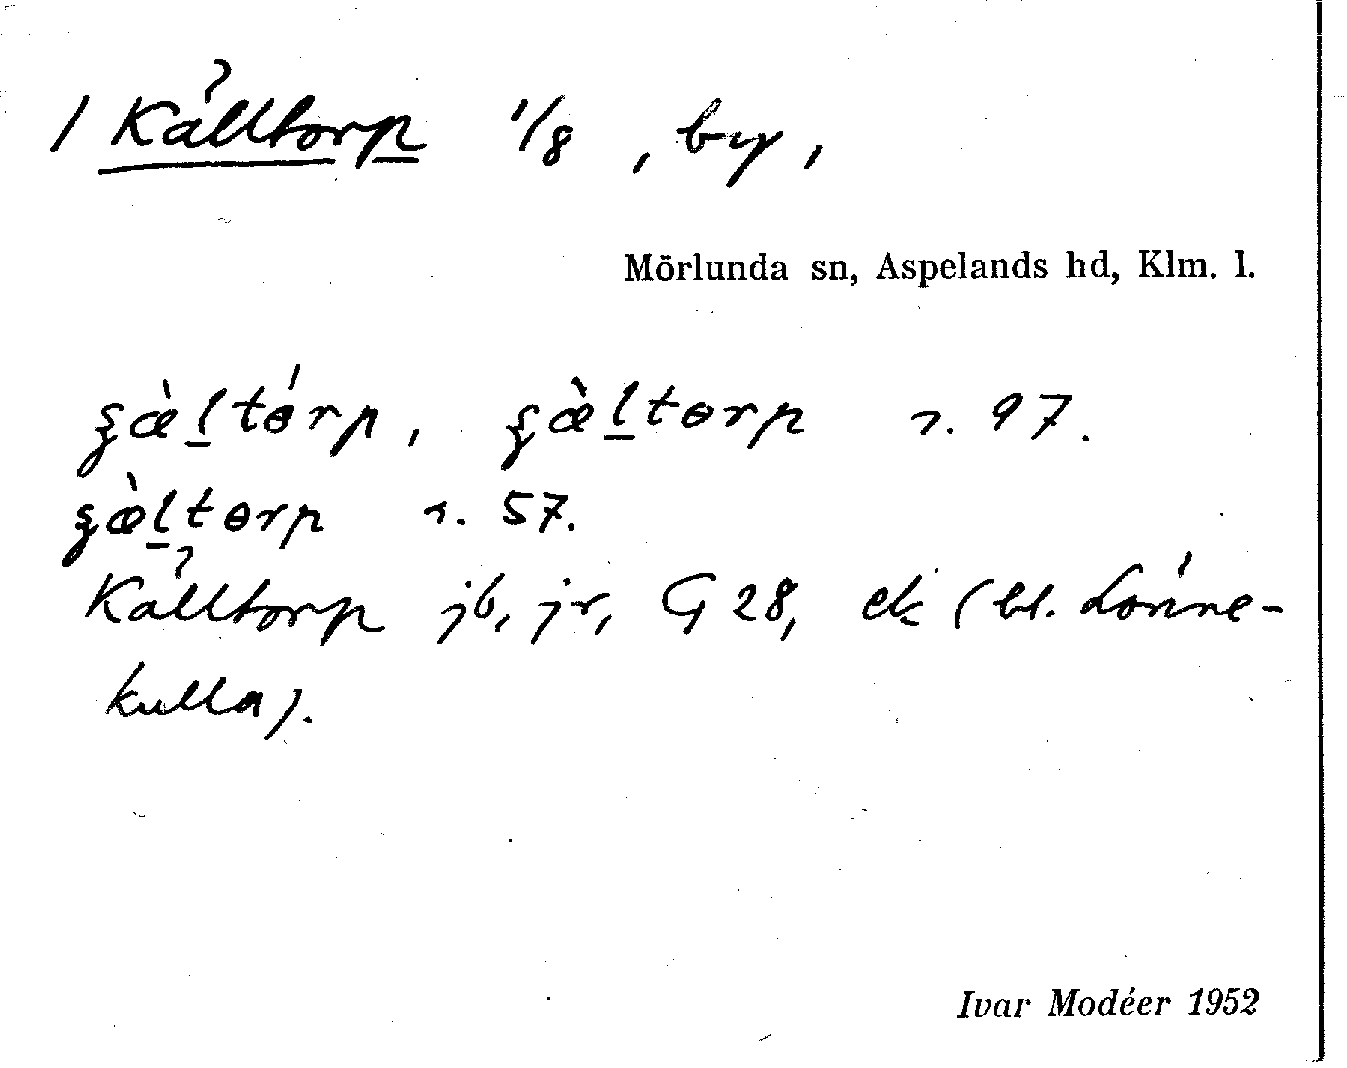 / Källtorp 1/8, by,
Mörlunda sn, Aspelands hd, Klm. l.
ʂæ̀l̠tɵ́rp, ʂæ̀l̠tɵrp s. 97.
ʂæ̀l̠tɵrp s. 57.
Källtorp jb, jr, G 28, ek (bl. Lönne-
kulla).
Ivar Modéer 1952